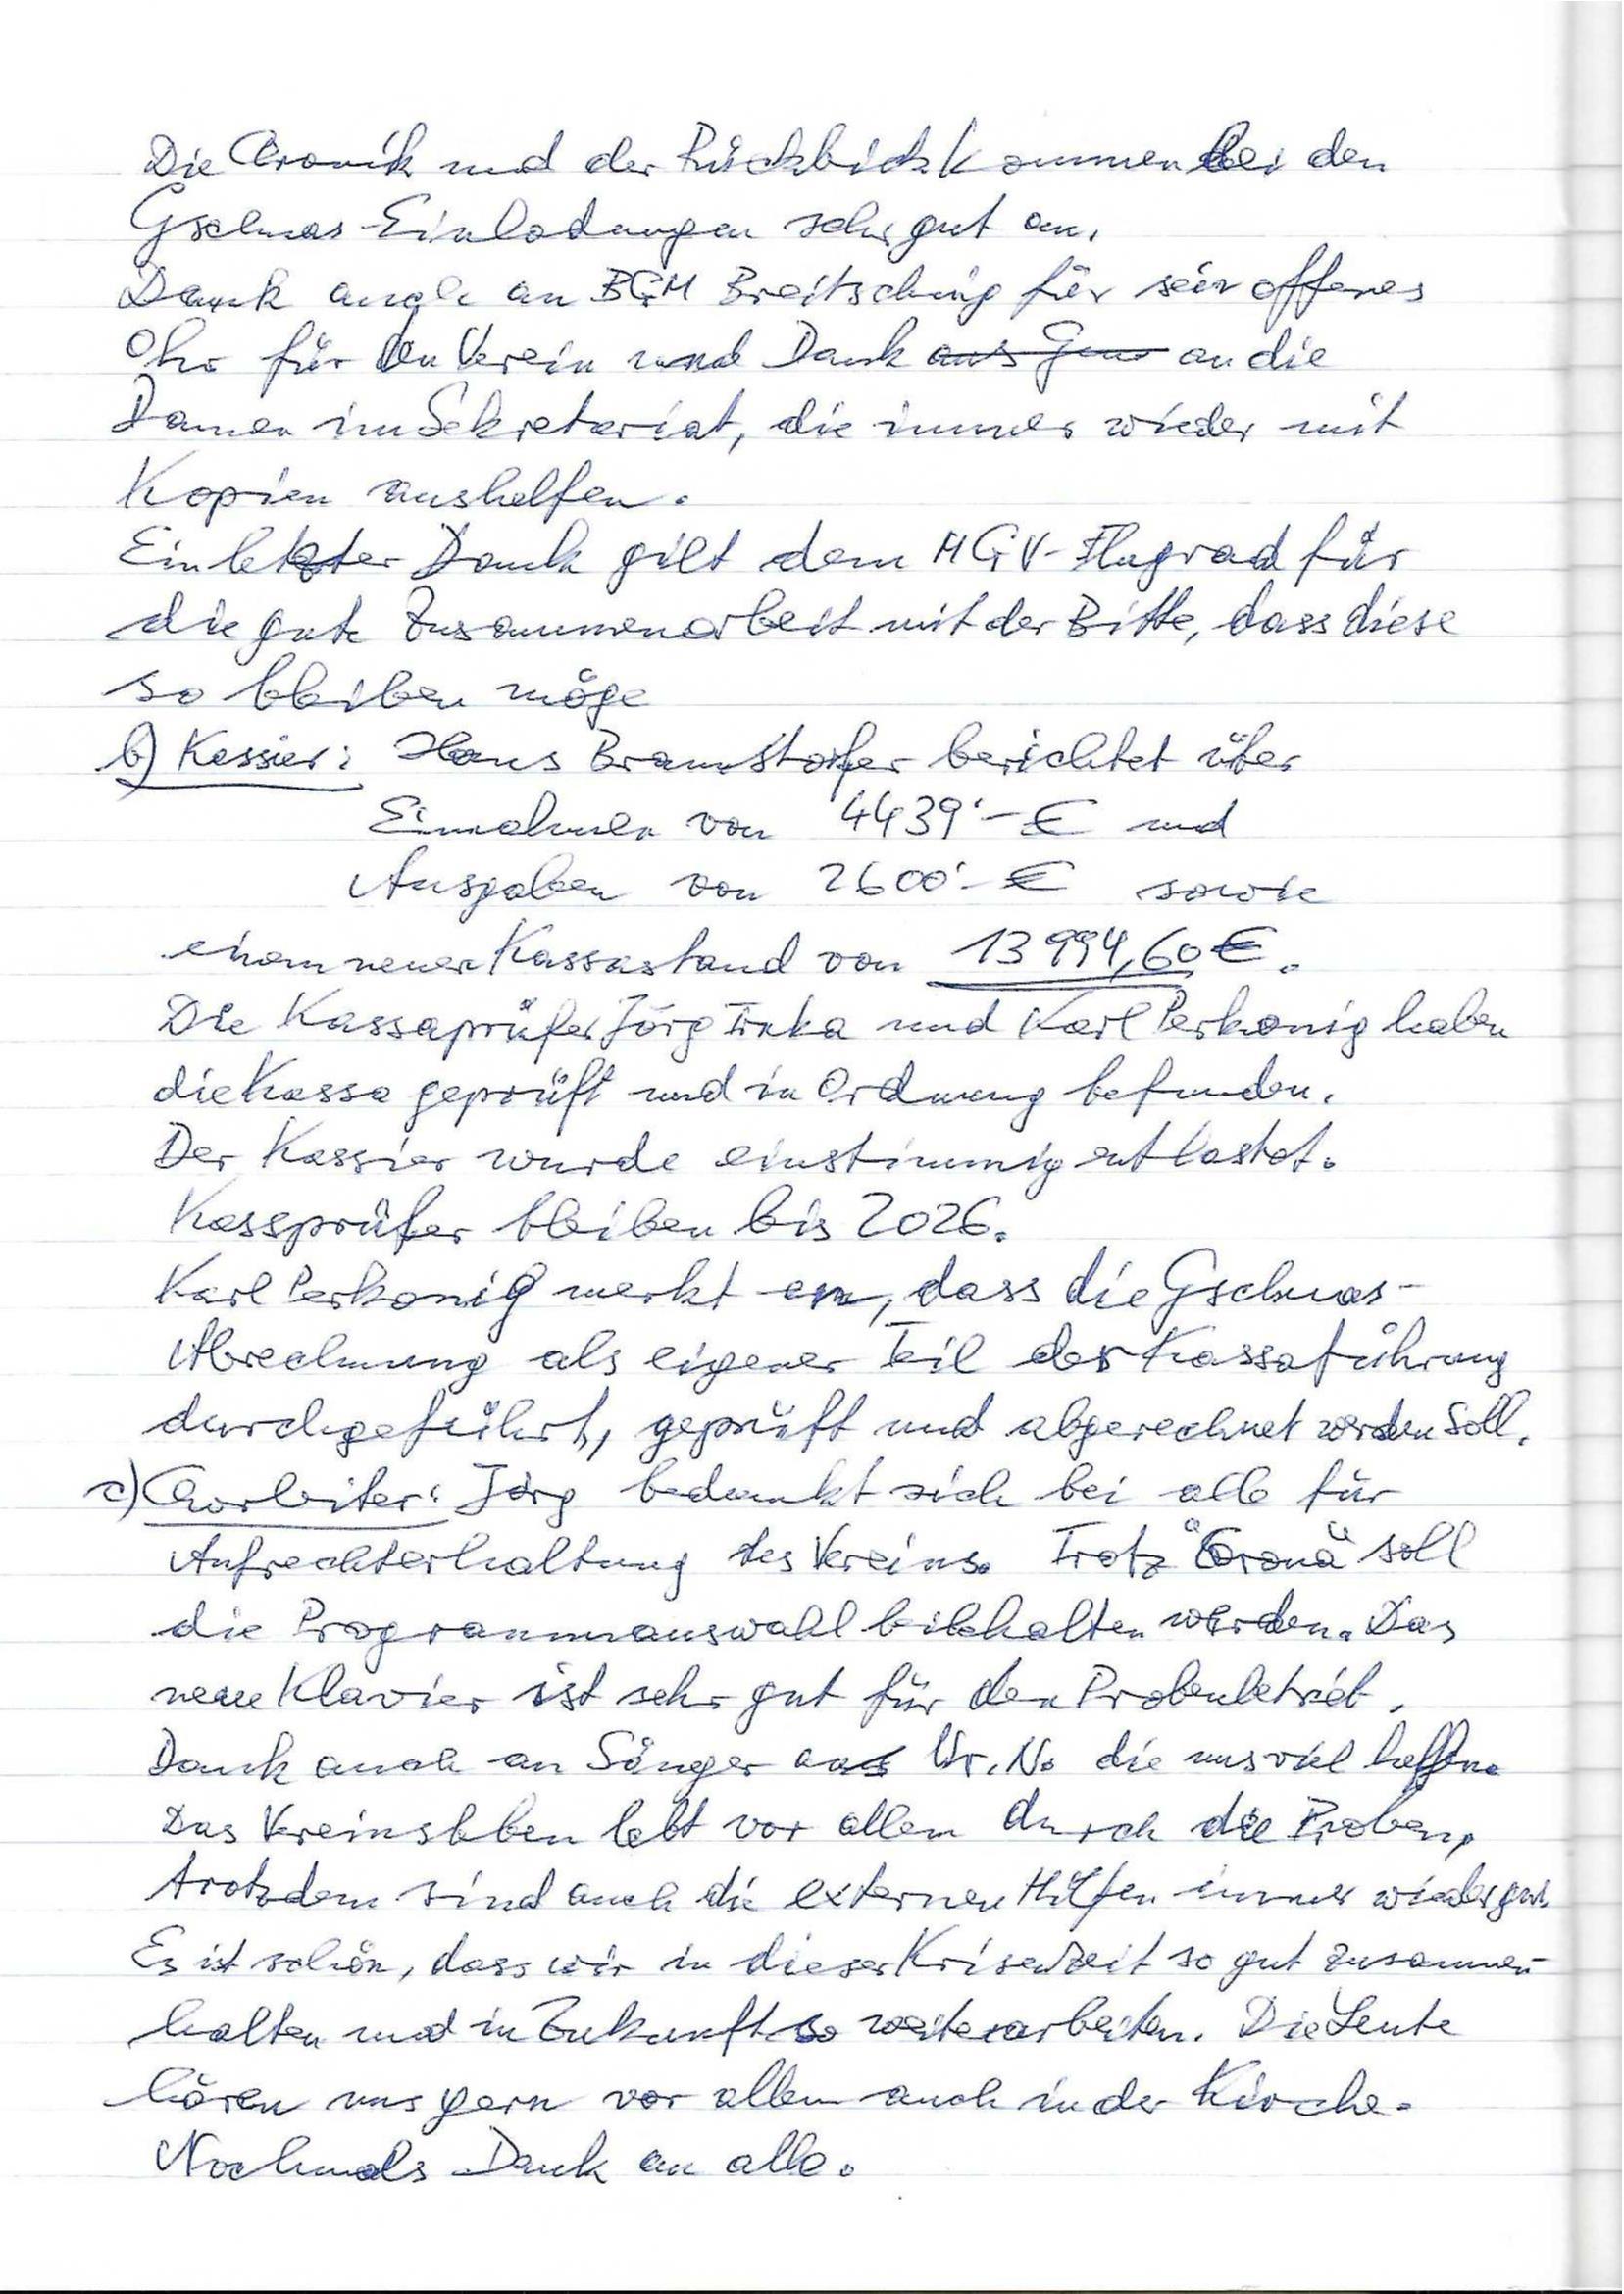 Die Cronik und der Rückblick kommen bei den
Gschnas-Einladungen sehr gut an.
Dank auch an BGM Breitsching für sein offenes
Ohr für den Verein und Dank an die
Damen im Sekretariat, die immer wieder mit
Kopien aushelfen.
Ein letzter Dank gilt dem MGV-Flugrad für
die gute Zusammenarbeit mit der Bitte, dass diese
so bleiben möge
b) Kassier: Hans Bramstorfer berichtet über
Einnahmen von 4439'-€ und
Ausgaben von 2600'-€ sowie
einem neuen Kassastand von 13994,60€.
Die Kassaprüfer Jörg und Karl Perkonig haben
die Kassa geprüft und in Ordnung befunden.
Der Kassier wurde einstimmig entlastet.
Kassprüfer bleiben bis 2026.
Karl Perkonig merkt an, dass die Gschnas-
Abrechnung als eigener Teil der Kassaführung
durchgeführt, geprüft und abgerechnet werden soll.
c) Chorleiter: Jörg bedankt sich bei alle für
Aufrechterhaltung des Vereins. Trotz "Corona" soll
die Programmauswahl beibehalten werden. Das
neue Klavier ist sehr gut für den Probenbetrieb.
Dank auch an Sänger aus Wr. N. die uns viel helfen.
Das Vereinsleben lebt vor allem durch die Proben,
trotzdem sind auch die externen Hilfen immer wieder gut.
Es ist schön, dass wir in dieser Krisenzeit so gut zusammen-
halten und in Zukunft so weiterarbeiten. Die Leute
hören uns gern vor allem auch in der Kirche.
Nochmals Dank an alle.